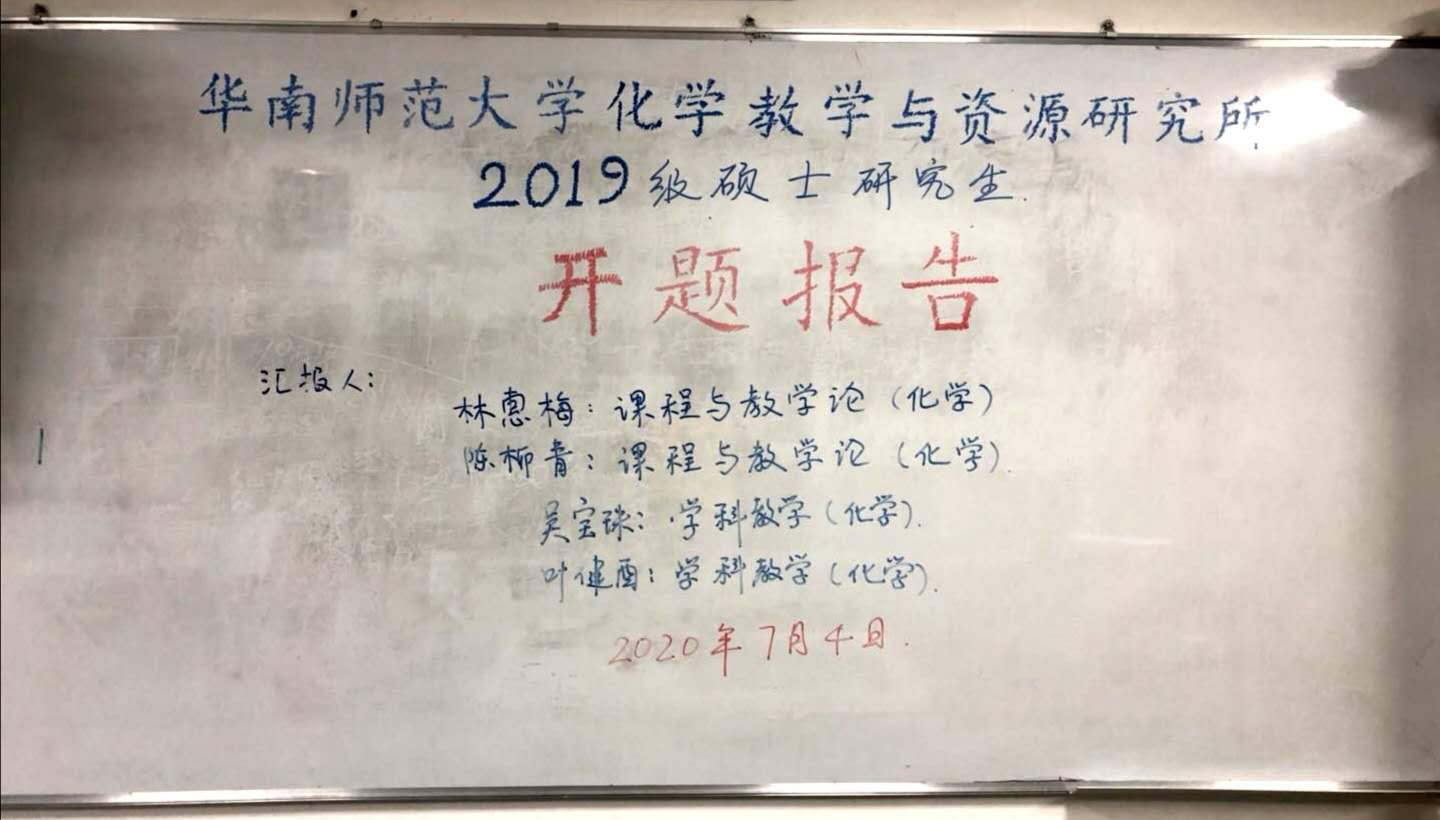 华南师范大学化学教学与资源研究所
2019级硕士研究生.
开题报告
汇报人:
林惠梅: 课程与教学论 (化学)
陈柳青: 课程与教学论 (化学).
吴宝珠: 学科教学 (化学).
叶健酉: 学科教学 (化学).
2020年7月4日.